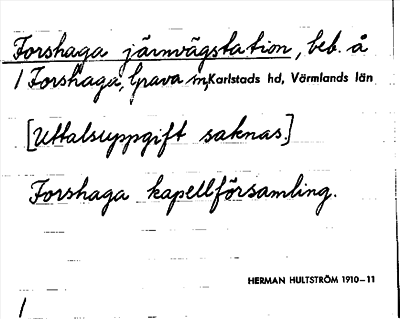 Forshaga järnvägstation, beb. å
/ Forshaga, Grava sn, Karlstads hd, Värmlands län
[Uttalsuppgift saknas.]
Forshaga kapellförsamling.
HERMAN HULTSTRÖM 1910–11
/